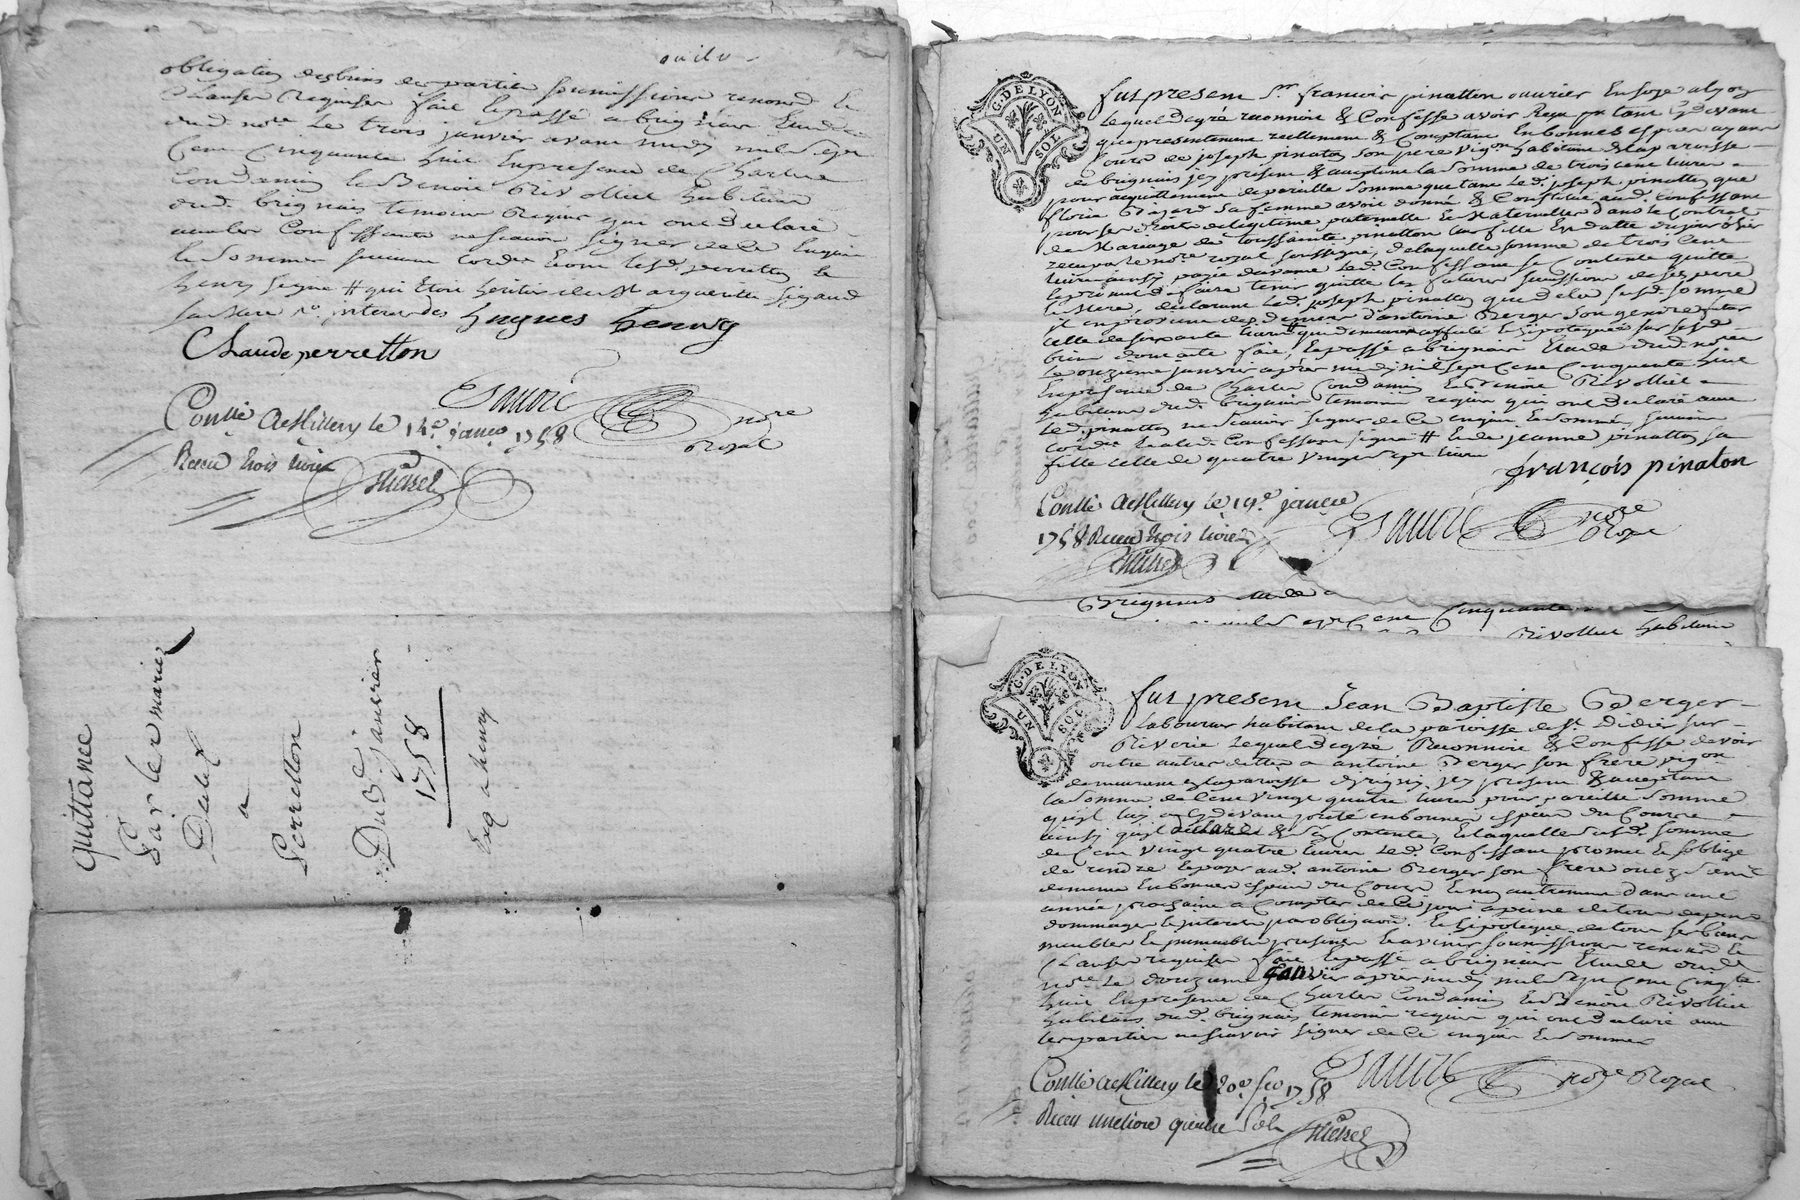 obligation des biens des parties soumissions renond et
clauses requises fait et passé a brignais Etude
dud. nore le trois janvier avant midy mil sept
Cent Cinquante huit En presence de Charles
Condamin et Benoit Rivollier habitans
dud. brignais temoins Requis qui ont declaré
avec les Confessants ne scavoir signer de ce Enquis
et Sommés suivant lord.
henry signé # qui Etoit heritier de Marguerite Sigaud
sa Mere
hugues henry
Claude perretton
Sauvre nore Royal
Conllé A Millery le 14e janer 1758
Receu trois livres
Michel
Quittance
Par les mariés
Dalex
a
Perretton
Du 3e janvier
1758
Exp a henry
G. DE LYON
UN SOL
fut present Sr. francois pinatton ouvrier En soye a lyon
Lequel de gré reconnoit & Confesse avoir Reçu
que presentement reellement & Comptant En bonnes especes ayant
Cours de joseph pinatton son pere vigon habitant de la parroisse
de brignais jcy present & acceptant la somme de trois cent livres
pour acquittement de pareille somme que tant led. joseph pinatton que
sa femme avoit donné & Constitué aud. Confessant
pour ses droits de legitime paternelle et Maternelle dans le Contrat
de Mariage de toussainte pinatton leur fille En datte du jour d'hier
reçu par le nore royal soussigné, de laquelle somme de trois Cent
livres ainsy payée devant led. Confessant se Contente quitte
et promet de faire tenir quitte les futures succession de ses pere
et Mere, declarant led. joseph pinatton que de la susd. somme
il en provient des deniers d'antoine Berger son gendre futur
celle de soixante livres # qui demeure affecté & hipotequée sur sesd.
biens dont acte fait, et passé a brignais Etude dud. nore
le onzieme janvier aprés midy mil sept Cent Cinquante huit
En presence de Charles Condamin et Benoit Rivollier
habitans dud. brignais temoins requis qui ont declaré avec
led. pinatton ne scavoir signer de ce enquis et sommés suivant
lord. et aled. Confessant signé # et de jeanne pinatton sa
fille celle de quatre vingt sept livres
françois pinaton
Conllé A Millery le 14e janvier
1758 Receu trois livres
Michel
Sauvre nore Royal
Brignais Etude
mil sept Cent Cinquante
Rivollier habitans
G. DE LYON
UN SOL
fut present Jean Baptiste Berger
Laboureur habitant de la paroisse de St. Didier sur
Riverie Lequel de gré Reconnoit & Confesse devoir
outre autres dettes a antoine Berger son frere vigon
demeurant en la paroisse d'jrigny jcy present & acceptant
la somme de Cent vingt quatre livres pour pareille somme
qu'il luy a Cy devant preté en bonnes especes du Cours
ainsy qu'il declare & sen Contente, & laquelle susd. somme
de Cent vingt quatre livres led. Confessant promet & soblige
de rendre et payer aud. antoine Berger son frere
de meme En bonnes especes du Cours & non autrement dans une
année prochaine a Compter de ce jour a peine de tous depens
dommages & interets par obligaon. et hipoteque de tous ses biens
meubles et immeubles presents et avenir soumissions renond et
Clauses requises fait et passé a brignais Etude dud.
nore le douzieme janvier aprés midy mil sept Cent Cinqte
huit En presence de Charles Condamin et Benoit Rivollier
habitans dud. brignais temoins requis qui ont declaré avec
les parties ne scavoir signer de ce enquis et sommés
Sauvre nore Royal
Conllé A Millery le 20e feo 1758
Receu une livre quatre sols
Michel